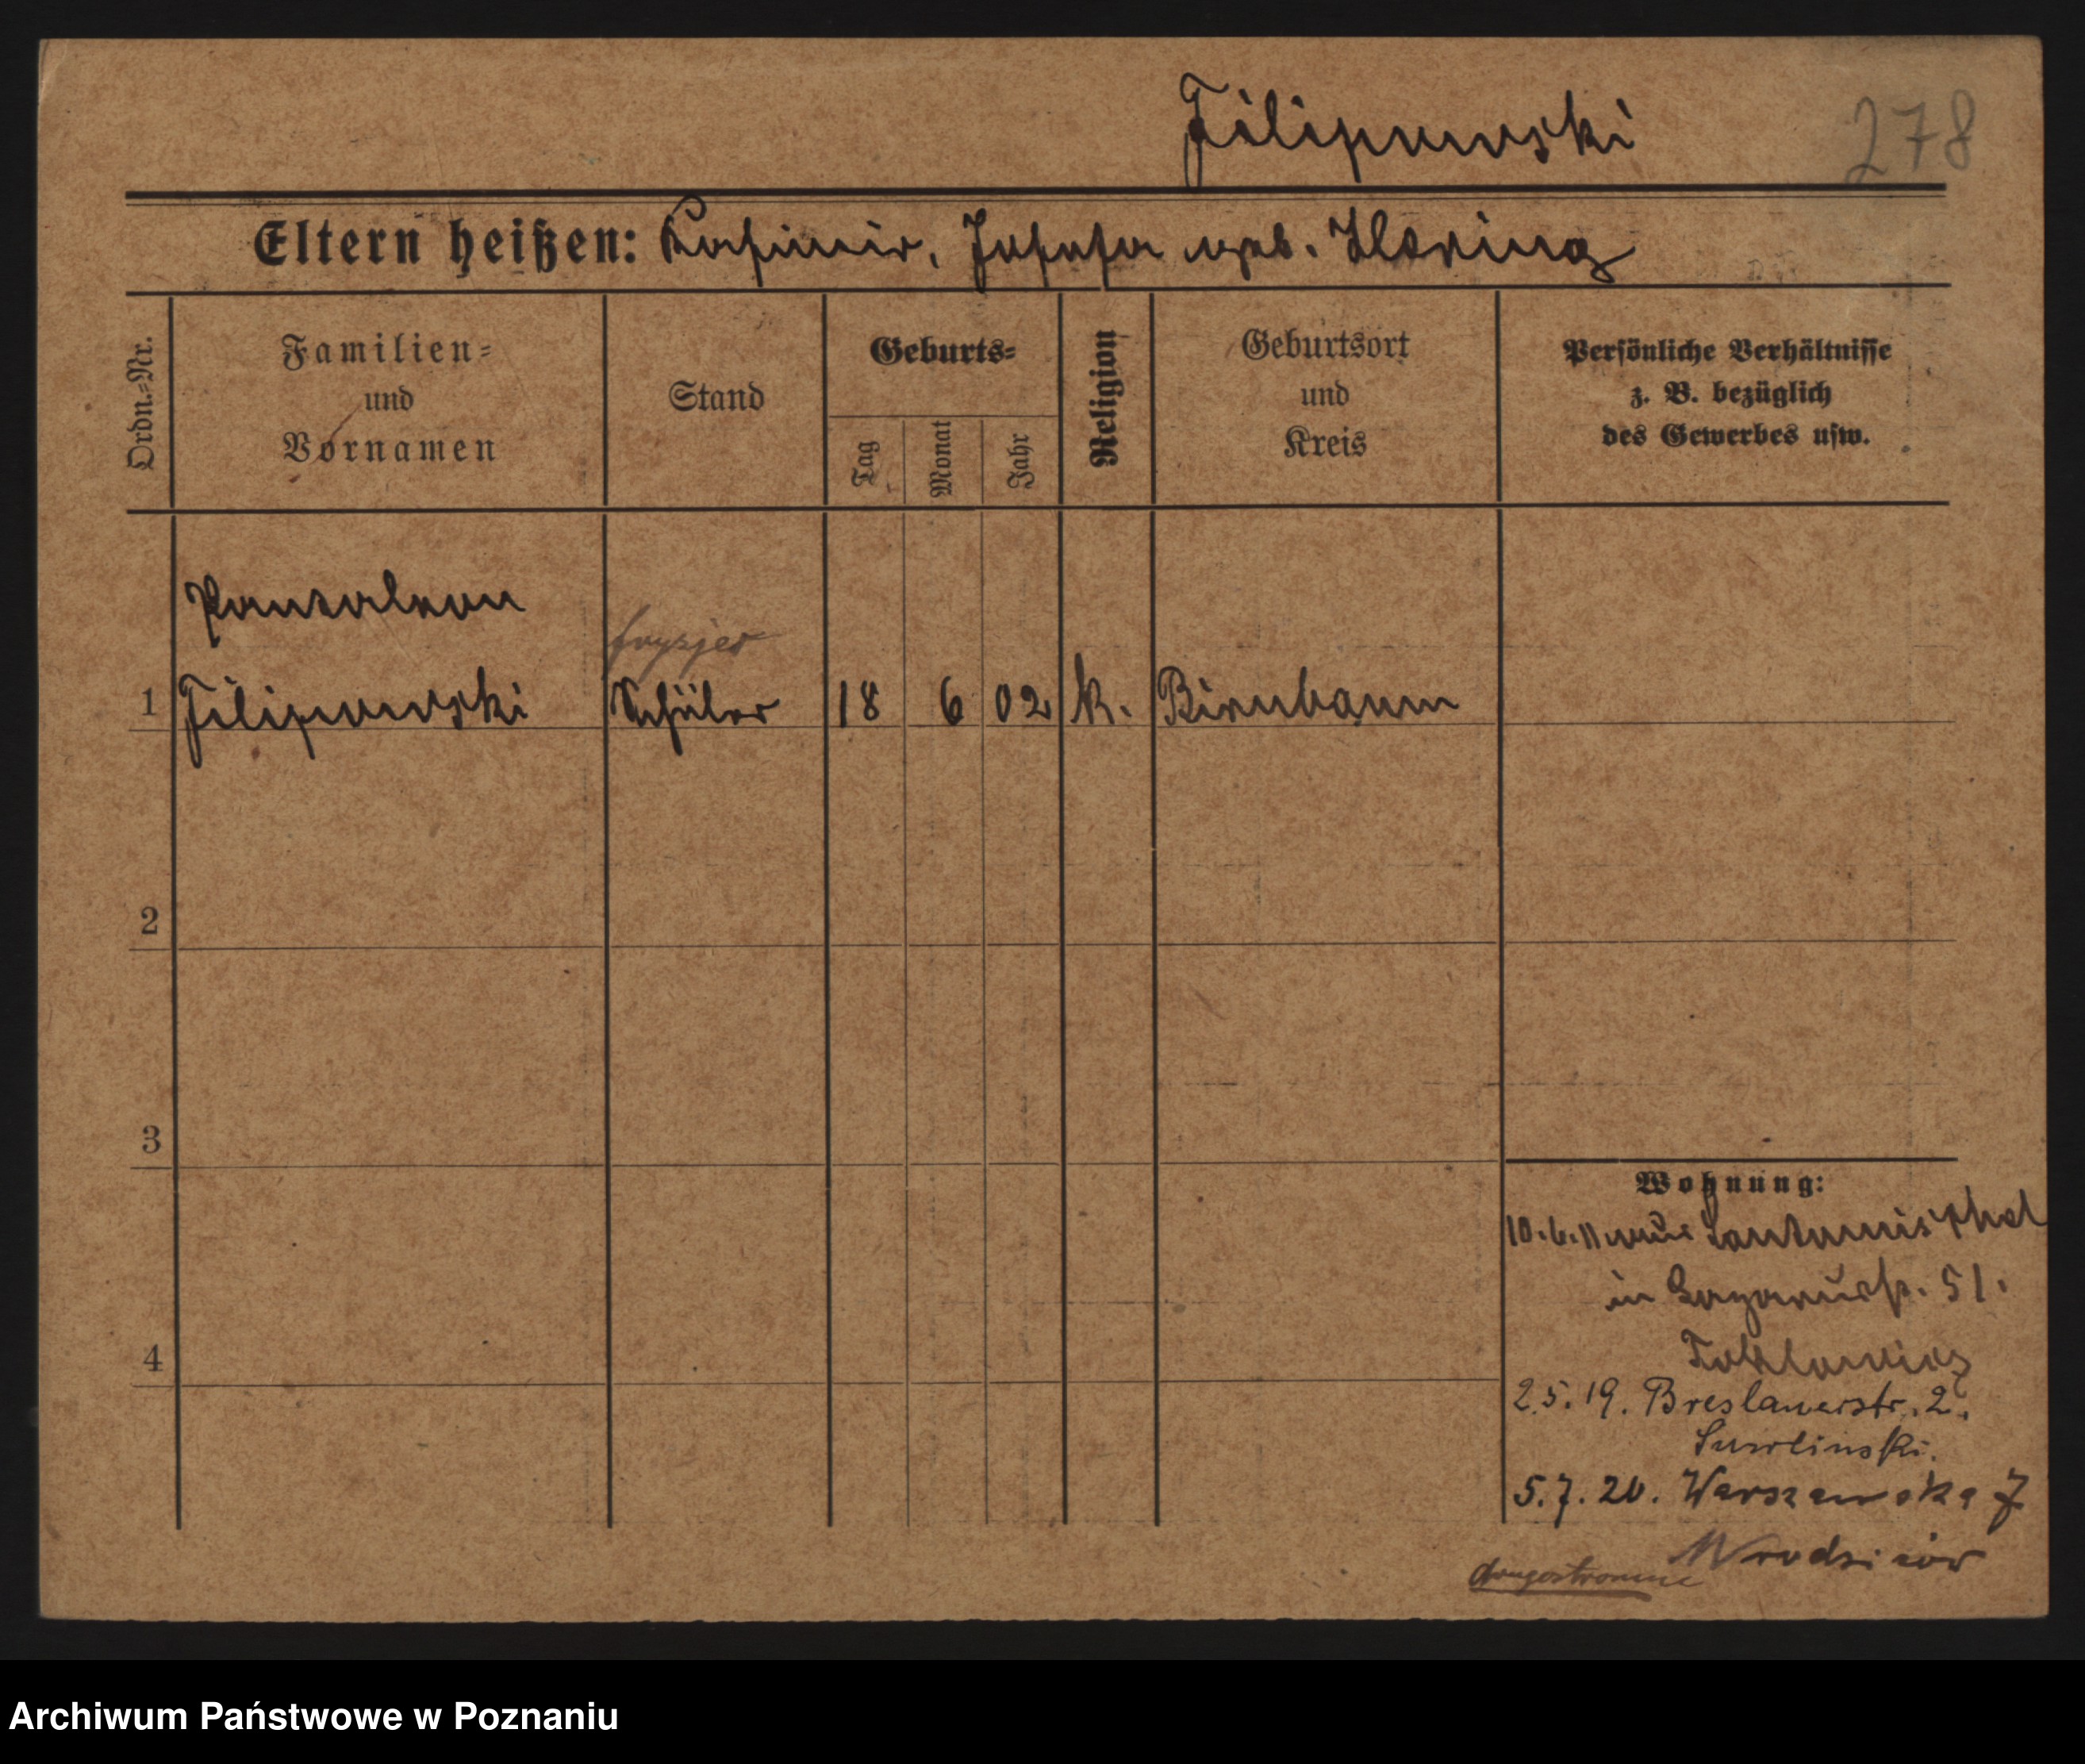 Filipowski
278
Eltern heißen: Kasimir, Josefa geb.
Ordn.=Nr.
Familien=
und
Vornamen
Stand
Geburts=
Tag
Monat
Jahr
Religion
Geburtsort
und
Kreis
Persönliche Verhältnisse
z. B. bezüglich
des Gewerbes usw.
Pantaleon
fryzjer
1 Filipowski Schüler 18 6 02 k. Birnbaum
2
3
4
Wohnung:
10.6.11 aus
in 51.
2.5.19. Breslauerstr. 2.
5.7.20. Warszawska 7
Archiwum Państwowe w Poznaniu